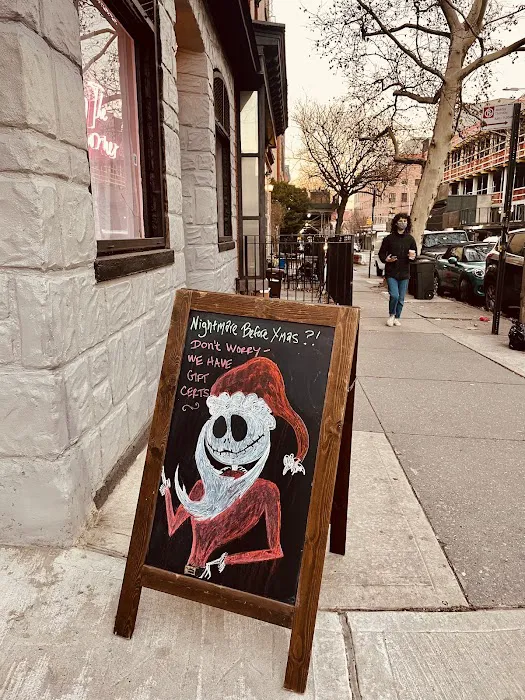 Nightmare Before Xmas ?!
DON'T WORRY -
WE HAVE
GIFT
CERTS
The